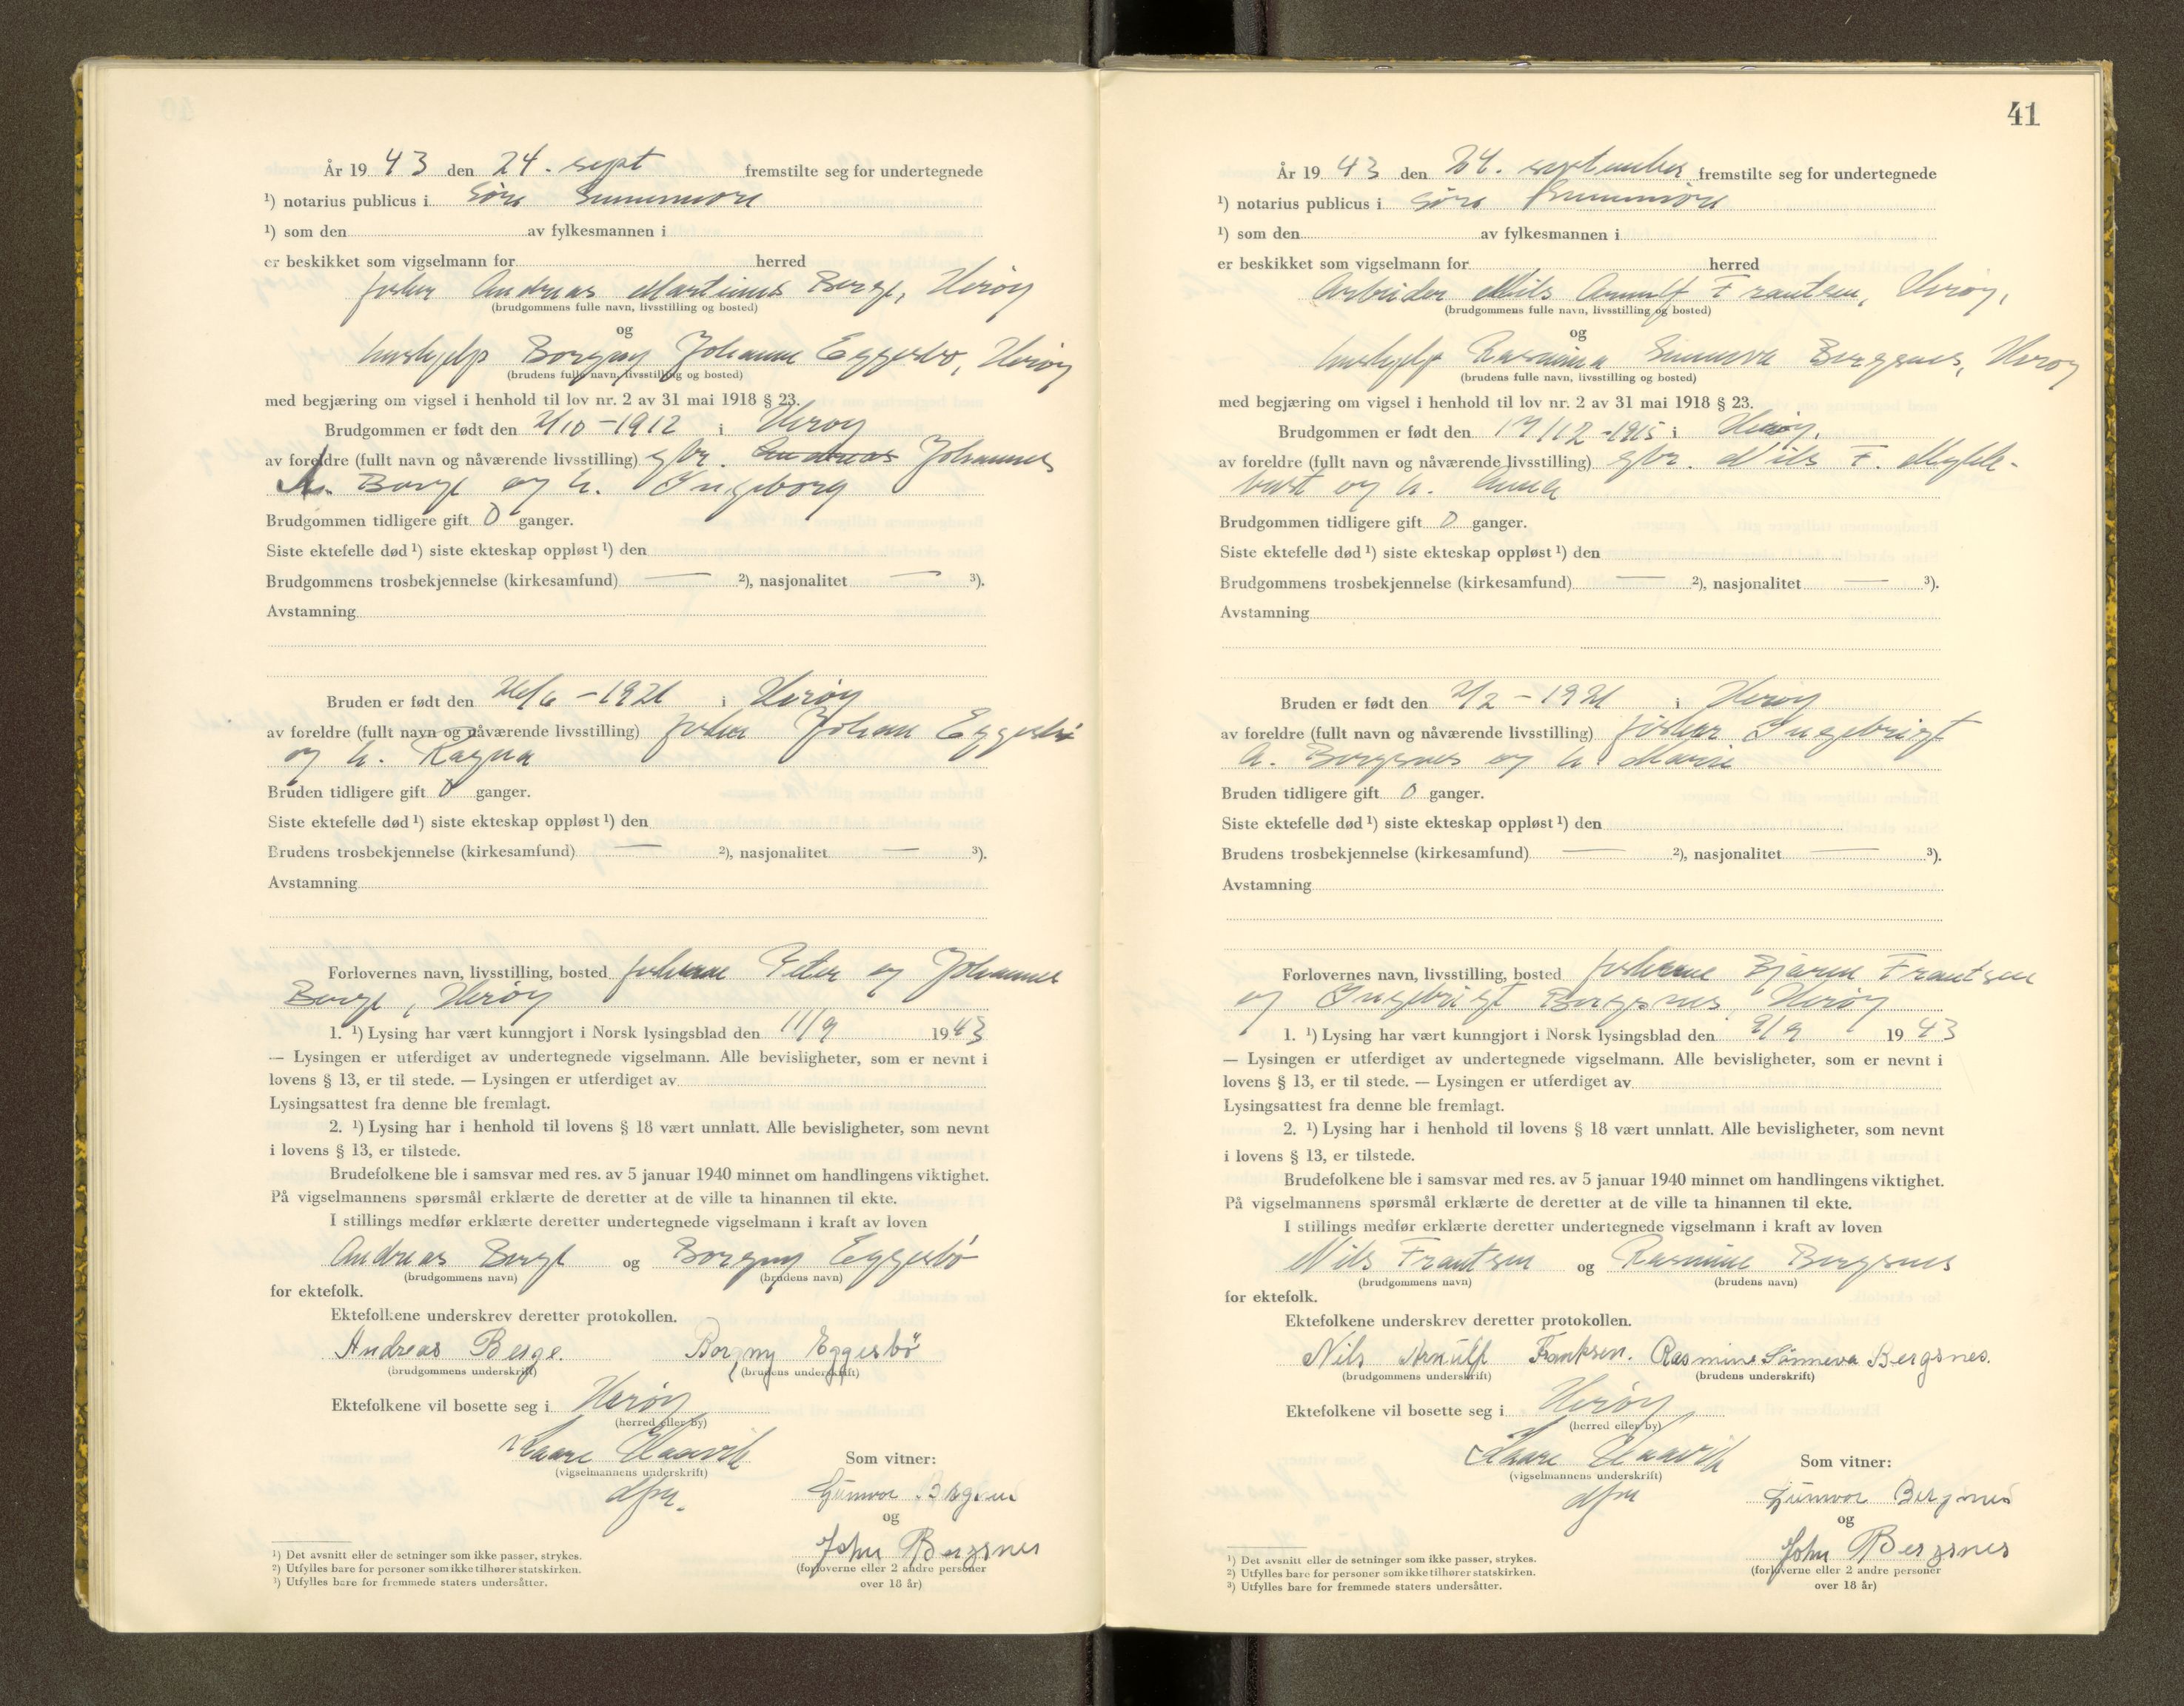 År 1943 den 24. sept fremstilte seg for undertegnede
¹) notarius publicus i Søre Sunnmøre
¹) som den av fylkesmannen i
er beskikket som vigselmann for herred
fisker Andreas Martinus Berge, Herøy
(brudgommens fulle navn, livsstilling og bosted)
og
hushjelp Borgny Johanne Eggesbø, Herøy
(brudens fulle navn, livsstilling og bosted)
med begjæring om vigsel i henhold til lov nr. 2 av 31 mai 1918 § 23.
Brudgommen er født den 2/10-1912 i Herøy
av foreldre (fullt navn og nåværende livsstilling) gbr. Andreas Johannes
A. Berge og h. Ingeborg
Brudgommen tidligere gift 0 ganger.
Siste ektefelle død ¹) siste ekteskap oppløst ¹) den
Brudgommens trosbekjennelse (kirkesamfund) — ²), nasjonalitet — ³).
Avstamning
Bruden er født den /6 - 1921 i Herøy
av foreldre (fullt navn og nåværende livsstilling) fisker Johan Eggesbø
og h. Ragna
Bruden tidligere gift 0 ganger.
Siste ektefelle død ¹) siste ekteskap oppløst ¹) den
Brudens trosbekjennelse (kirkesamfund) — ²), nasjonalitet — ³).
Avstamning
Forlovernes navn, livsstilling, bosted fiskerne Peter og Johannes
Berge, Herøy
1. ¹) Lysing har vært kunngjort i Norsk lysingsblad den 11/9 1943
— Lysingen er utferdiget av undertegnede vigselmann. Alle bevisligheter, som er nevnt i
lovens § 13, er til stede. — Lysingen er utferdiget av
Lysingsattest fra denne ble fremlagt.
2. ¹) Lysing har i henhold til lovens § 18 vært unnlatt. Alle bevisligheter, som nevnt
i lovens § 13, er tilstede.
Brudefolkene ble i samsvar med res. av 5 januar 1940 minnet om handlingens viktighet.
På vigselmannens spørsmål erklærte de deretter at de ville ta hinannen til ekte.
I stillings medfør erklærte deretter undertegnede vigselmann i kraft av loven
Andreas Berge og Borgny Eggesbø
(brudgommens navn) (brudens navn)
for ektefolk.
Ektefolkene underskrev deretter protokollen.
Andreas Berge. Borgny Eggesbö
(brudgommens underskrift) (brudens underskrift)
Ektefolkene vil bosette seg i Herøy
(herred eller by)
Kaare Haavik
(vigselmannens underskrift)
dfm.
Som vitner:
Gunvor Bergsnes
og
John Bergsnes
(forloverne eller 2 andre personer
over 18 år)
¹) Det avsnitt eller de setninger som ikke passer, strykes.
²) Utfylles bare for personer som ikke tilhører statskirken.
³) Utfylles bare for fremmede staters undersåtter.
41
År 1943 den 24. september fremstilte seg for undertegnede
¹) notarius publicus i Søre Sunnmøre
¹) som den av fylkesmannen i
er beskikket som vigselmann for herred
Arbeider Nils Arnulf Frantsen, Herøy,
(brudgommens fulle navn, livsstilling og bosted)
og
hushjelp Rasmine Sunneva Bergsnes, Herøy
(brudens fulle navn, livsstilling og bosted)
med begjæring om vigsel i henhold til lov nr. 2 av 31 mai 1918 § 23.
Brudgommen er født den 17/12-1915 i Herøy.
av foreldre (fullt navn og nåværende livsstilling) gbr. Nils F. Mykle-
bust og h. Anna
Brudgommen tidligere gift 0 ganger.
Siste ektefelle død ¹) siste ekteskap oppløst ¹) den
Brudgommens trosbekjennelse (kirkesamfund) — ²), nasjonalitet — ³).
Avstamning
Bruden er født den 2/2 - 1921 i Herøy
av foreldre (fullt navn og nåværende livsstilling) fisker Ingebrigt
A. Bergsnes og h. Marie
Bruden tidligere gift 0 ganger.
Siste ektefelle død ¹) siste ekteskap oppløst ¹) den
Brudens trosbekjennelse (kirkesamfund) — ²), nasjonalitet — ³).
Avstamning
Forlovernes navn, livsstilling, bosted fiskerne Bjarne Frantsen
og Ingebrigt Bergsnes, Herøy
1. ¹) Lysing har vært kunngjort i Norsk lysingsblad den 9/9 1943
— Lysingen er utferdiget av undertegnede vigselmann. Alle bevisligheter, som er nevnt i
lovens § 13, er til stede. — Lysingen er utferdiget av
Lysingsattest fra denne ble fremlagt.
2. ¹) Lysing har i henhold til lovens § 18 vært unnlatt. Alle bevisligheter, som nevnt
i lovens § 13, er tilstede.
Brudefolkene ble i samsvar med res. av 5 januar 1940 minnet om handlingens viktighet.
På vigselmannens spørsmål erklærte de deretter at de ville ta hinannen til ekte.
I stillings medfør erklærte deretter undertegnede vigselmann i kraft av loven
Nils Frantsen og Rasmine Bergsnes
(brudgommens navn) (brudens navn)
for ektefolk.
Ektefolkene underskrev deretter protokollen.
Nils Arnulf Frantsen. Rasmine Sünneva Bergsnes.
(brudgommens underskrift) (brudens underskrift)
Ektefolkene vil bosette seg i Herøy
(herred eller by)
Kaare Haavik
(vigselmannens underskrift)
dfm
Som vitner:
Gunvor Bergsnes
og
John Bergsnes
(forloverne eller 2 andre personer
over 18 år)
¹) Det avsnitt eller de setninger som ikke passer, strykes.
²) Utfylles bare for personer som ikke tilhører statskirken.
³) Utfylles bare for fremmede staters undersåtter.